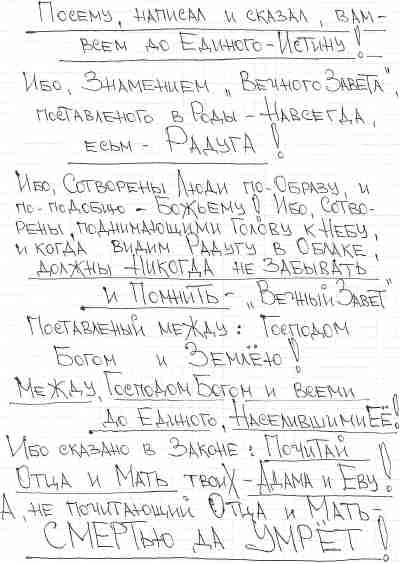 Посему, написал и сказал, вам-
всем до Единого-Истину!
Ибо, Знамением „Вечного Завета",
поставленого в Роды - Навсегда,
есьм - Радуга!
Ибо, Сотворены Люди по-Образу, и
по-подобию - Божьему! Ибо, Сотво-
рены, поднимающими Голову к Небу,
и когда видим Радугу в Облаке,
должны Никогда не Забывать
и Помнить - „Вечный Завет"
Поставленый между: Господом
Богом и Землёю!
Между, Господом Богом и всеми
до Единого, Населившими Её!
Ибо сказано в Законе: Почитай
Отца и Мать твоих - Адама и Еву!
А, не почитающий Отца и Мать-
СМЕРТЬЮ ДА УМРЁТ!